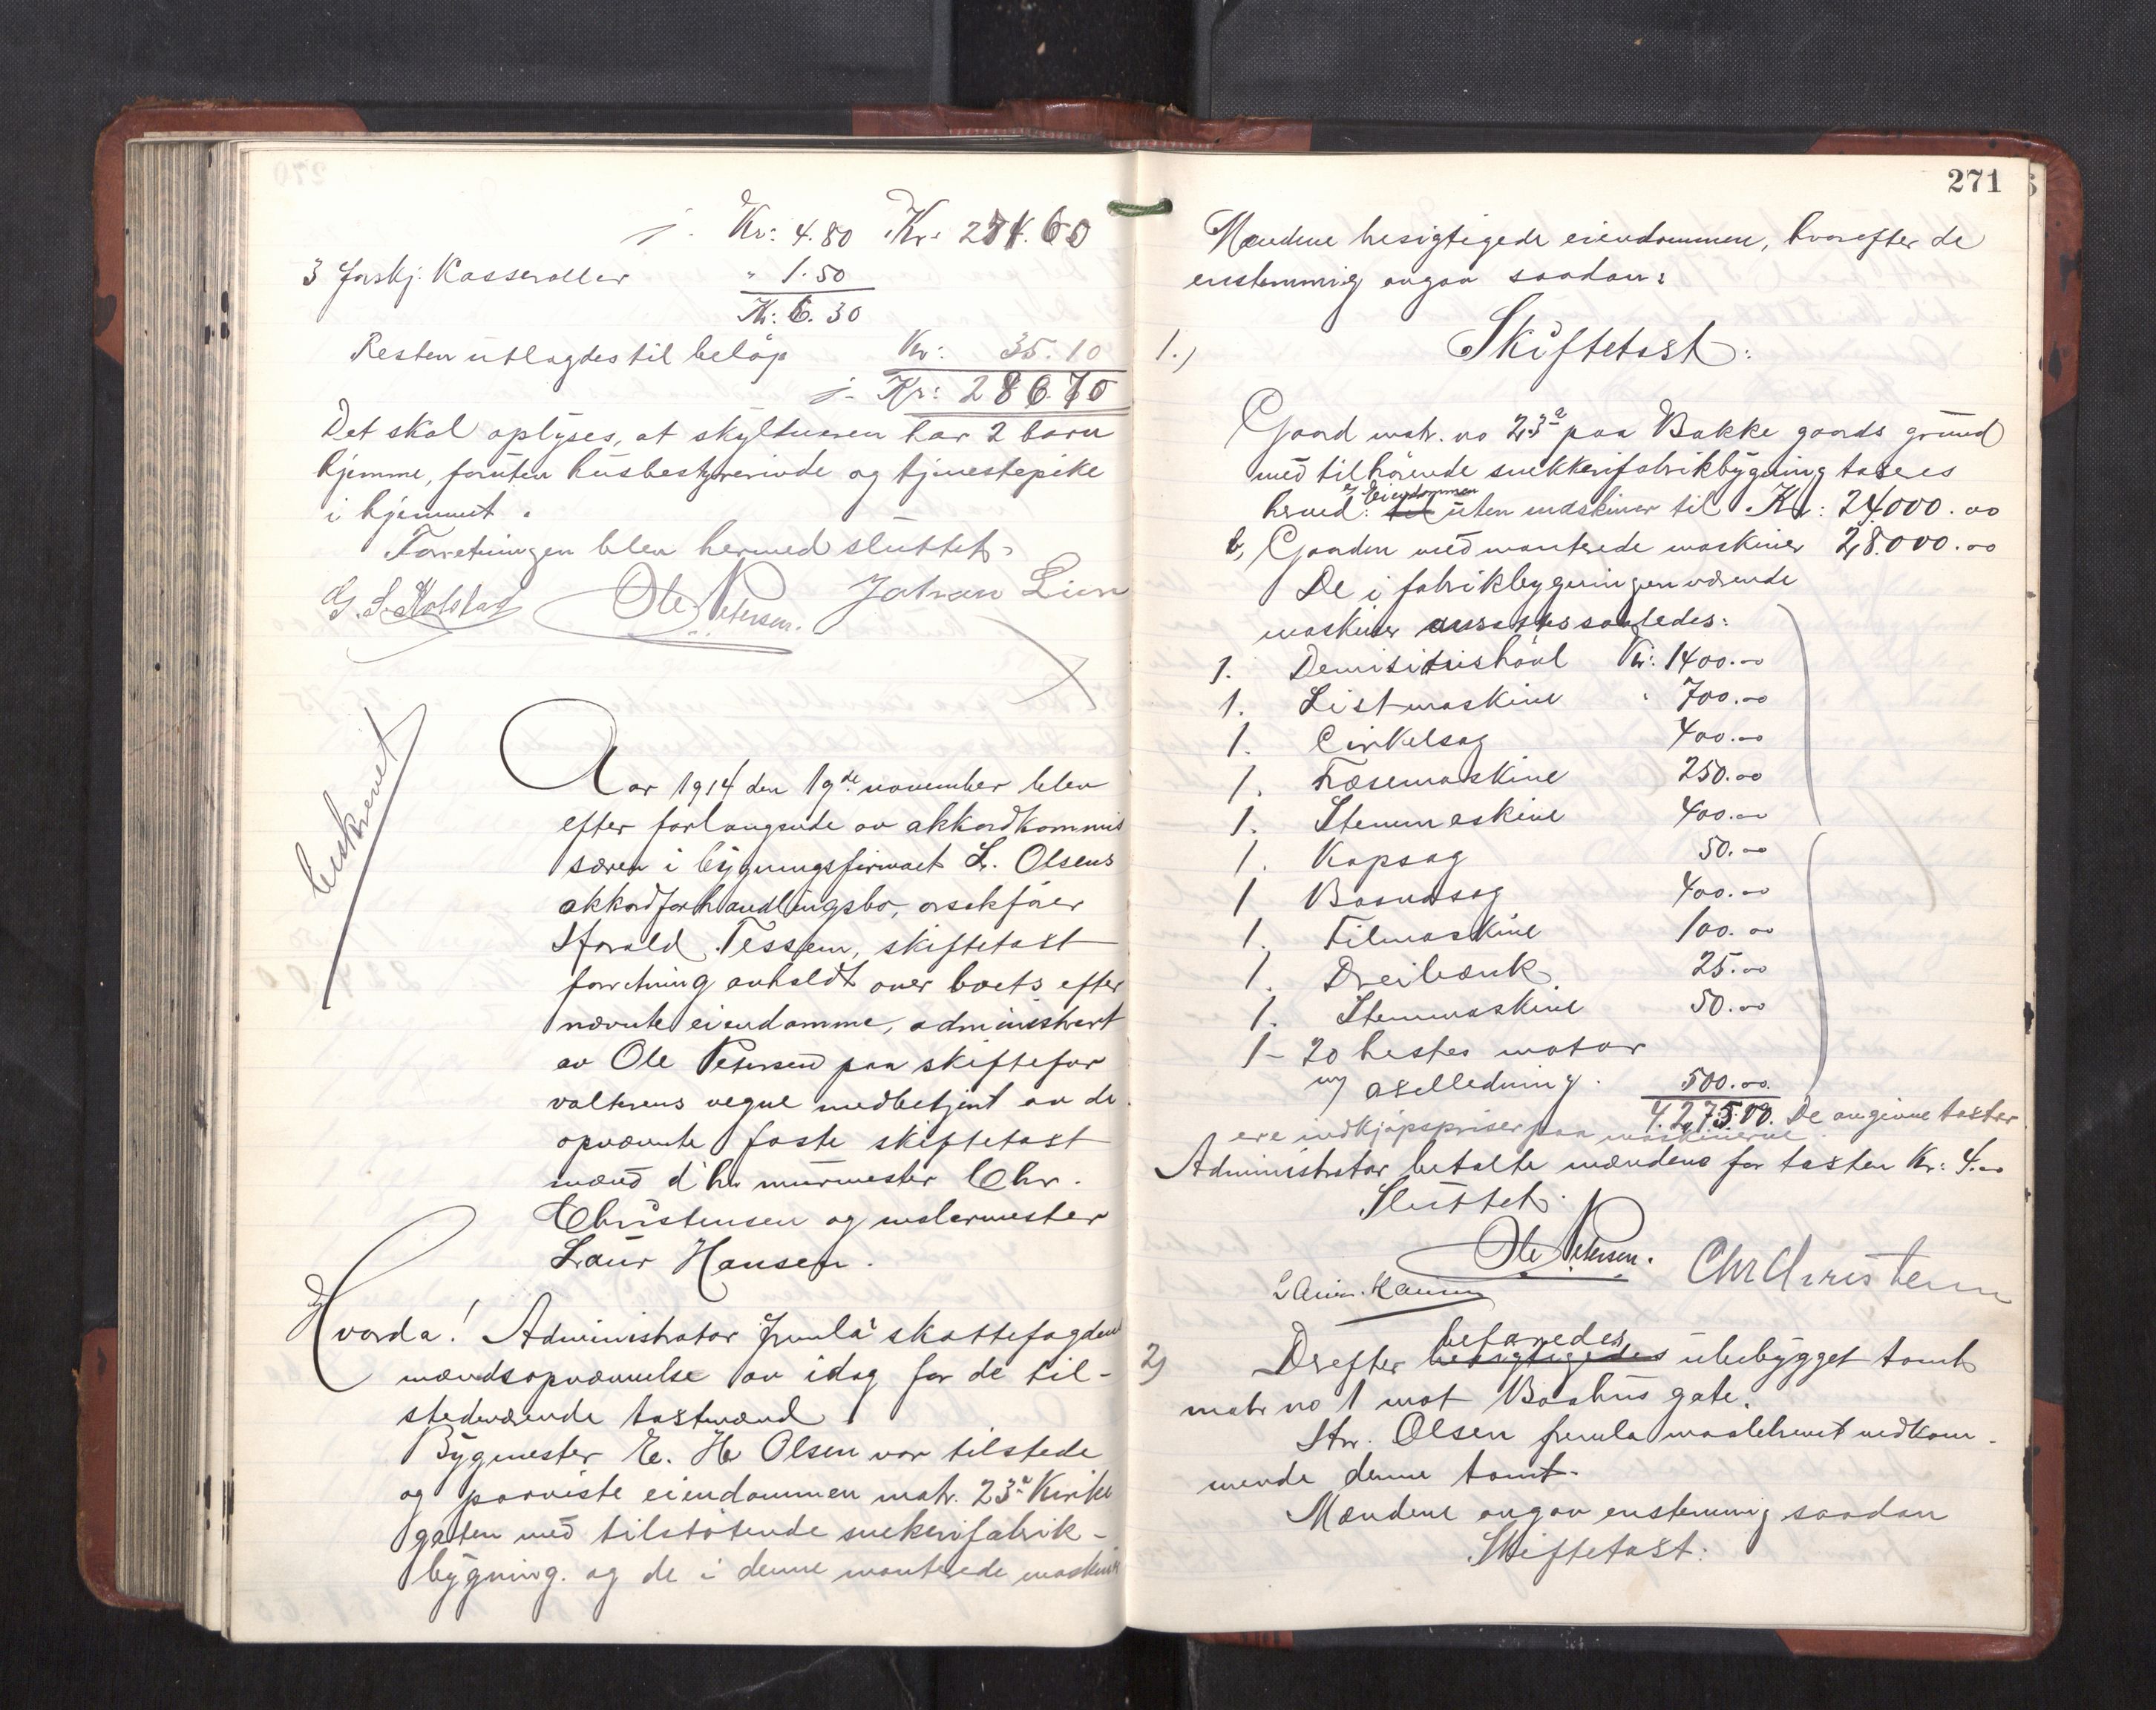 j. Kr: 4.80 Kr. 251.60
3 forskj. Kasseroller " 1.50
Kr: 6.30
Resten utlagdes til beløp Kr: 35.10
j. Kr: 286.70
Det skal oplyses, at skyldneren har 2 barn
hjemme, foruten husbestyrerinde og tjenestepike
i hjemmet.
Forretningen blev hermed sluttet.
Ole Petersen. Johan Lien
beskrevet
Aar 1914 den 19de november blev
efter forlangende av akkordkommis
særen i bygningsfirmaet L. Olsens
akkordforhandlingsbo, orsakfører
Harald Tessem, skiftetakst
forretning avholdt over boets efter
nævnte eiendomme, administrert
av Ole Petersen paa skiftefor
valterens vegne medbetjent av de
opnævnte faste skiftetakst
mænd d'hr. murmester Chr.
Christensen og malermester
Laur Hansen.
Hvorda! Administrator freml. skattefogdens
mændsopnævnelse av idag for de til-
stedeværende takstmænd
Bygmester E. H. Olsen var tilstede
og paaviste eiendommen matr. 23a Kirke
gaten med tilstøtende snekerifabrik-
bygning. og de i denne monterede maskiner
271
Mændene besigtigede eiendommen, hvorefter de
enstemmig avgav saadan:
1.) Skiftetakst:
Gaard matr. no 23a paa Bakke gaards grund
med tilhørende snekkerifabrikbygning takseres
herved: a, Eiendommen til uten maskiner til Kr: 24000.00
b, Gaarden med monterede maskiner 28.000.00
De i fabrikbygningen værende
maskiner ansættes saaledes:
1. Høvl Kr: 1400.00
1. Listmaskine " 700.00
1. Cirkelsag 400.00
1. Fræsemaskine 250.00
1. Stemmeskine 400.00
1. Kapsag 50.00
1 Baandsag 400.00
1. Filmaskine 100.00
1. Dreibænk 25.00
1. Stemmaskine 50.00
1 - 20 hestes motor
m/ akselledning. 500.00
4.275.00. De angivne takster
ere indkjøpspriser paa maskinerne
Administrator betalte mændene for taksten Kr: 4.00
Sluttet.
Ole Petersen. Chr Christensen
Laur. Hansen
2) Derefter besigtigedes befaredes ubebygget tomt
matr no 1 mot Baahus gate.
Hr. Olsen fremla maalebrevet vedkom-
mende denne tomt.
Mændene avgav enstemmig saadan
Skiftetakst: